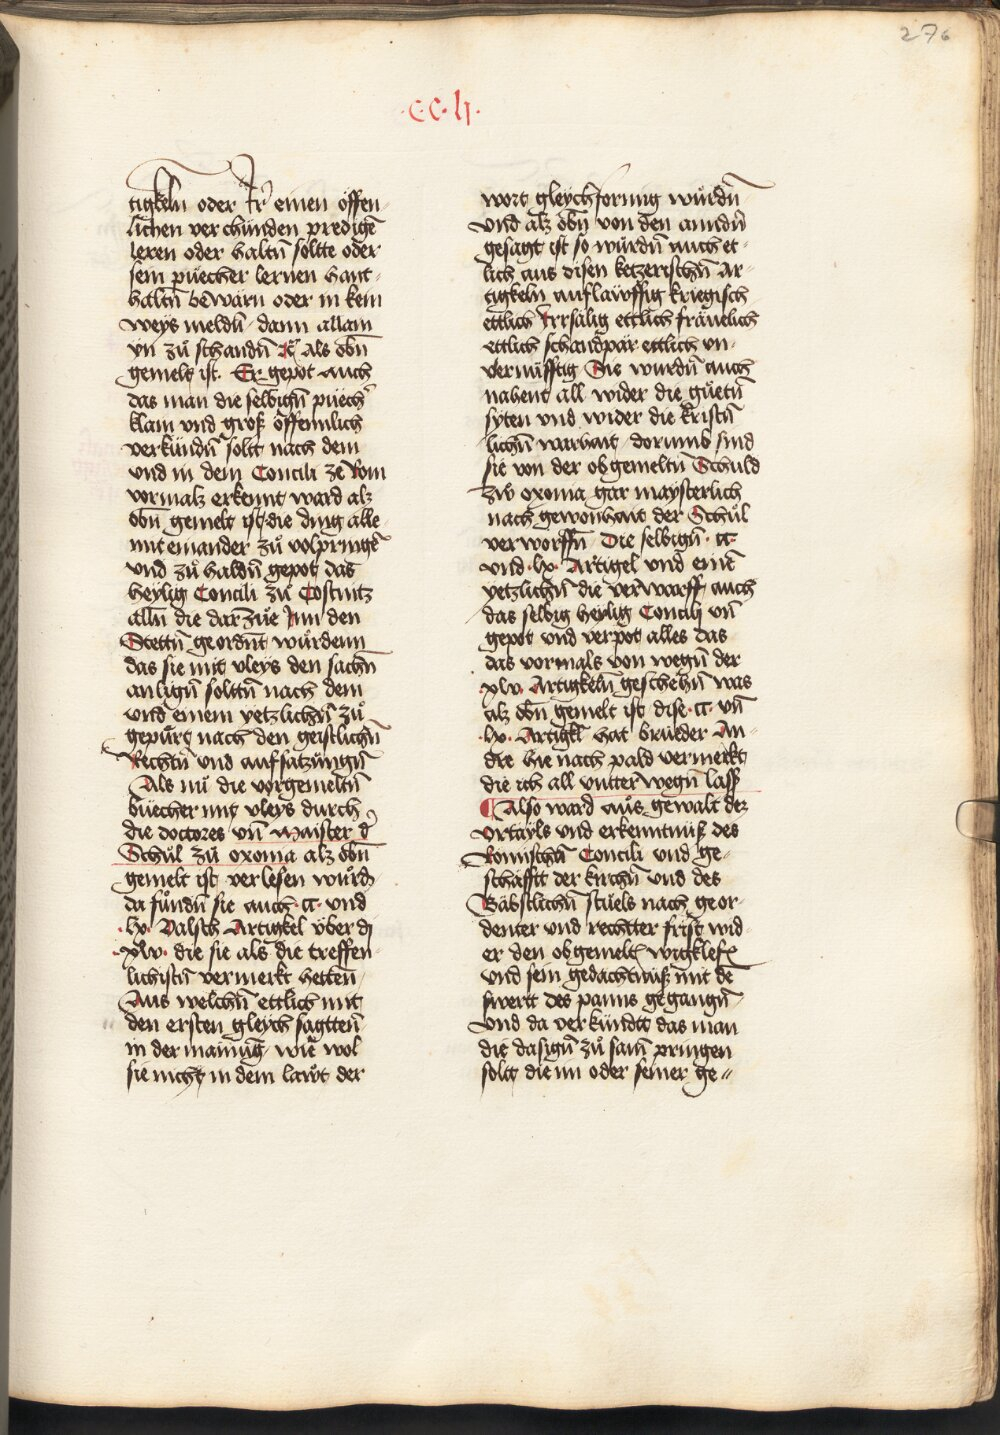 276
·cc·lj·
tigkeln oder Jr einen öffen-
lichen verchünden predigē
leren oder haltn̄ sollte oder
sein püecher lernen hant-
haltn̄ bewarn oder in kein
weys meldn̄ dann allain
vn̄ zu schandn̄ Als obn̄
gemelt ist. Er gepot auch
das man die selbign̄ püech
klain vnd groß öffennlich
verkündn̄ solt nach dem
vnd in dem Concili ze Rom
vormalz erkennt ward alz
obn̄ gemelt ist die ding alle
mit einander zu volpringē
vnd zu haldn̄ gepot das
heylig Concili zu Costnitz
alln̄ die darzue Jnn den
Stettn̄ geordnt wurdenn
das sie mit vleys den sachn̄
anlign̄ solttn̄ nach dem
vnd einem yetzlichn̄ zu
gepürt nach den geistlichn̄
Rechtn̄ vnd aufsatzungn̄
Als nu die vorgemeltn̄
büecher mit vleys durch
die doctores vn̄ Maister d̄
Schul zu oxonia alz obn̄
gemelt ist verlesen wurd
da fundn̄ sie auch ·cc· vnd
·lx· Valsch Artigkel vber dj
·xlv· die sie als die treffen-
lichistn̄ vermerkt hetten
Aus welchn̄ ettlich mit
den ersten gleych sagtten
in der mainug wie wol
sie nicht in dem lawt der
wort gleychformig wurdn̄
vnd alz obn̄ von den anndn̄
gesagt ist so wurdn̄ auch et-
lich aus disen ketzerischn̄ Ar-
tigkeln auflawffig kriegisch
ettlich Jrrsälig ettlich fräuelich
ettlich schandpar ettlich vn-
vernüfftig Die wurdn̄ auch
nahent all wider die guetn̄
syten vnd wider die kristn̄
lichn̄ warhait dorumb sind
sie von der obgemeltn̄ Schuld
zw oxonia gar maysterlich
nach gewonhait der Schul
verworffn̄ Die selbign̄ ·cc·
vnd ·lx· Artigel vnd einē
yetzlichn̄ die verwarff auch
das selbig heylig Concilj vn̄
gepot vnd verpot alles das
das vormals von wegn̄ der
·xlv· Artigkeln̄ geschehn̄ was
alz obn̄ gemelt ist dise ·cc· vn̄
·lx· Artigkl̄ hat brueder An-
dre hie nach pald vermerkt
die ich all vntter wegn̄ lass
Also ward aus gewalt der
vrtayls vnd erkenntnüß des
Romischn̄ Concili vnd ge-
schäfftt der kirchn̄ vnd des
Bäbstlichn̄ stuels nach geor-
denter vnd rechtter frist wid-
er den obgemeltn̄ wigklefn̄
vnd sein gedachtnüß mit dē
swert des panns gegangn̄
vnd da verkündtt das man
die dasign̄ zu sam̄ pringen
solt die im oder seiner ge-